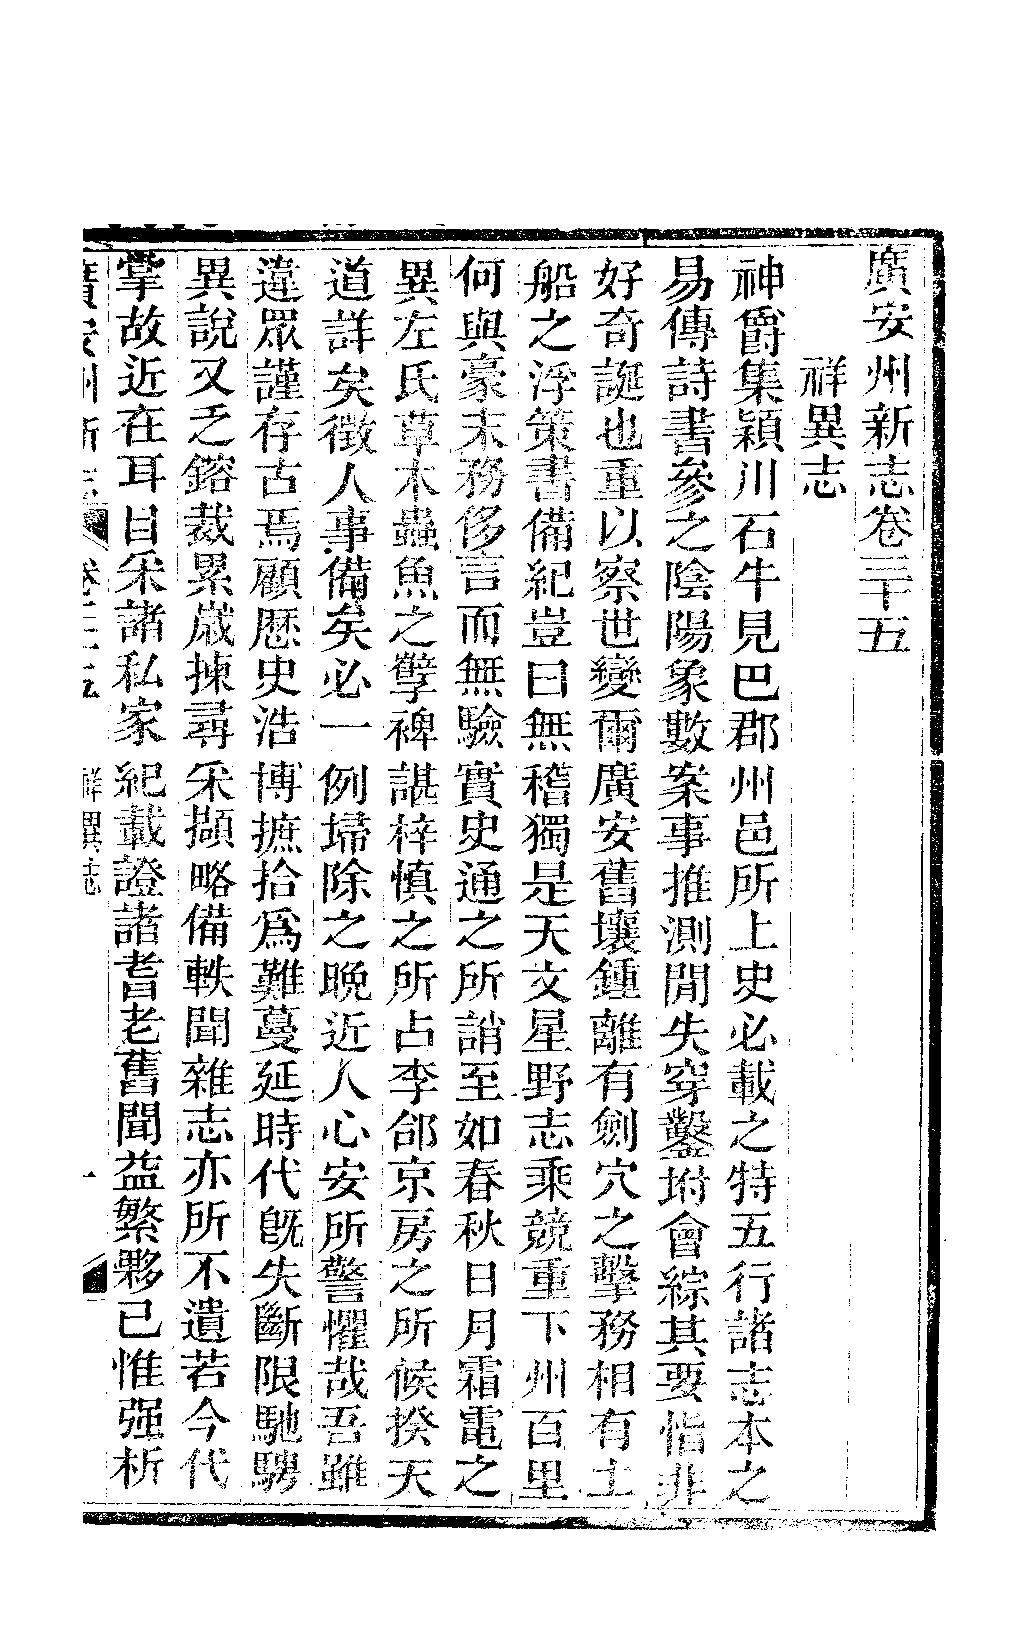 廣安州新志卷三十五
祥異志
神爵集潁川石牛見巴郡州邑所上史必載之特五行諸志本之
易傳詩書參之陰陽象數案事推測閒失穿鑿坿會綜其要恉非
好奇誕也重以察世變爾廣安舊壤鍾離有劍穴之擊務相有土
船之浮策書備紀豈曰無稽獨是天文星野志乘競重下州百里
何與豪末務侈言而無驗實史通之所誚至如春秋日月霜電之
異左氏草木蟲魚之孽裨諶梓慎之所占李郃京房之所候揆天
道詳矣徵人事備矣必一例埽除之晚近人心安所警懼哉吾雖
違眾謹存古焉顧歷史浩博摭拾爲難蔓延時代旣失斷限馳騁
異說又乏鎔裁累歲揀尋采擷略備軼聞雜志亦所不遺若今代
掌故近在耳目采諸私家紀載證諸耆老舊聞益繁夥已惟强析
廣安州新志 卷三十五 祥異志 一